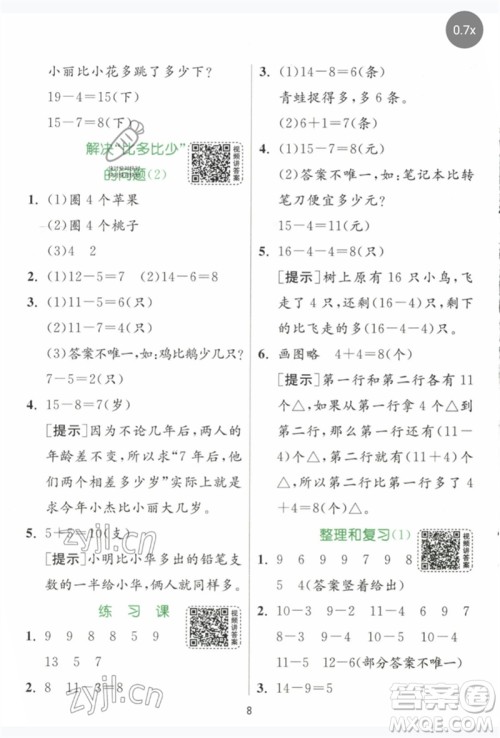 0.7x
小丽比小花多跳了多少下?
19-4=15(下)
15-7=8(下)
解决“比多比少”
的问题(2)
视频讲答案
1. (1)圈 4 个苹果
(2)圈 4 个桃子
(3)4 2
2. (1)12-5=7 (2)14-6=8
3. (1)11-5=6(只)
(2)11-7=4(只)
(3)答案不唯一,如:鸡比鹅少几只?
7-5=2(只)
4. 15-8=7(岁)
[提示]因为不论几年后,两人的
年龄差不变,所以求“7 年后,两
个人相差多少岁”实际上就是求
今年小杰比小丽大几岁。
5. 5+5=10(支)
[提示]小明比小华多出的铅笔支
数的一半给小华,俩人就同样多。
练 习 课
视频讲答案
1. 9 9 8 8 5 9
13 5 7
2. 8 11-3=8
3. (1)14-8=6(条)
青蛙捉得多,多 6 条。
(2)6+1=7(条)
4. (1)15-7=8(元)
(2)答案不唯一,如:笔记本比转
笔刀便宜多少元?
15-4=11(元)
5. 16-4-4=8(只)
[提示]树上原有 16 只小鸟,飞
走了 4 只,还剩(16-4)只,剩下
的比飞走的多(16-4-4)只。
6. 画图略 4+4=8(个)
[提示]第一行和第二行各有 11
个△,如果从第一行拿 4 个△到第
二行,那么第一行还有(11-
4)个△,第二行就有(11+4)个
△,所以第一行比第二行少(4+
4)个△。
整理和复习(1)
视频讲答案
1. 9 6 9 9 7 9 8
5 4(答案竖着给出)
2. 10-3 11-4 9 9 7 9
12-5 13-6(部分答案不唯一)
3. 14-9=5(个)
8
zyjl.cn
zyjl.cn
答案圈
MXQE.COM